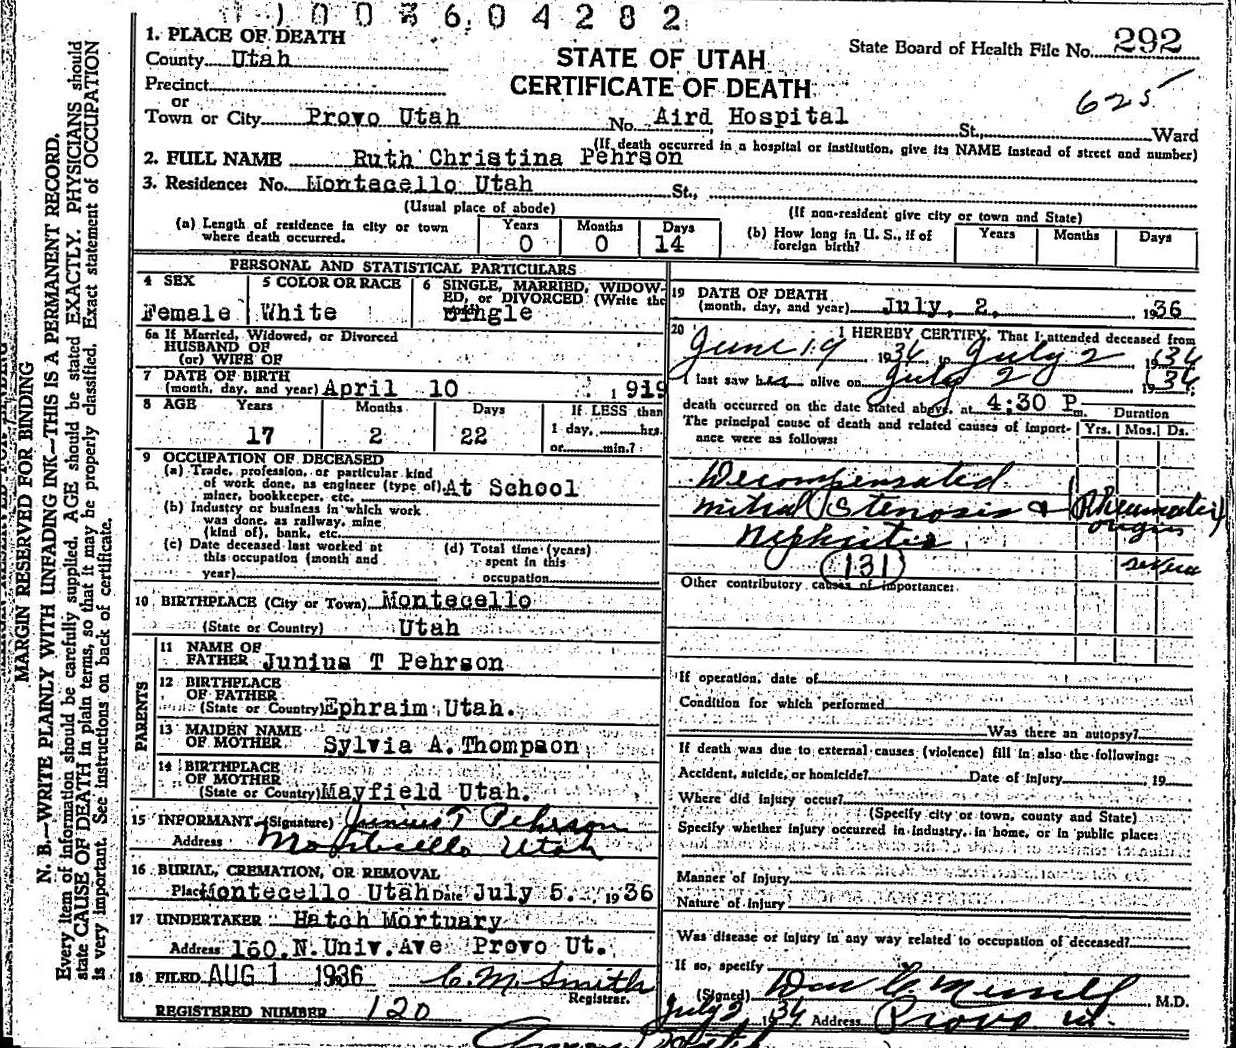 003604282
1. PLACE OF DEATH
County Utah
Precinct
or
Town or City Provo Utah No. Aird Hospital St., Ward
STATE OF UTAH
CERTIFICATE OF DEATH
State Board of Health File No. 292
625
(If death occurred in a hospital or institution, give its NAME instead of street and number)
2. FULL NAME Ruth Christina Pehrson
3. Residence: No. Montacello Utah St.,
(Usual place of abode) (If non-resident give city or town and State)
(a) Length of residence in city or town where death occurred. Years 0 Months 0 Days 14
(b) How long in U. S., if of foreign birth? Years Months Days
PERSONAL AND STATISTICAL PARTICULARS
4 SEX Female
5 COLOR OR RACE White
6 SINGLE, MARRIED, WIDOWED, or DIVORCED (Write the word) Single
6a If Married, Widowed, or Divorced
HUSBAND OF
(or) WIFE OF
7 DATE OF BIRTH
(month, day, and year) April 10 1919
8 AGE Years 17 Months 2 Days 22 If LESS than 1 day, hrs. or min.?
9 OCCUPATION OF DECEASED
(a) Trade, profession, or particular kind
of work done, as engineer (type of) At School
miner, bookkeeper, etc.
(b) Industry or business in which work
was done, as railway, mine
(kind of), bank, etc.
(c) Date deceased last worked at
this occupation (month and
year)
(d) Total time (years)
spent in this
occupation
10 BIRTHPLACE (City or Town) Montecello
(State or Country) Utah
PARENTS
11 NAME OF
FATHER Junius T Pehrson
12 BIRTHPLACE
OF FATHER
(State or Country) Ephraim Utah.
13 MAIDEN NAME
OF MOTHER Sylvia A. Thompson
14 BIRTHPLACE
OF MOTHER
(State or Country) Mayfield Utah.
15 INFORMANT (Signature) Junius T Pehrson
Address Monticello Utah
16 BURIAL, CREMATION, OR REMOVAL
Place Montecello Utah Date July 5. 1936
17 UNDERTAKER Hatch Mortuary
Address 160 N. Univ. Ave Provo Ut.
18 FILED AUG 1 1936 C. M. Smith
Registrar.
REGISTERED NUMBER 120
19 DATE OF DEATH
(month, day, and year) July, 2, 1936
20 I HEREBY CERTIFY, That I attended deceased from
June 19 1936 to July 2 1936
I last saw her alive on July 2 1936
death occurred on the date stated above, at 4:30 P m.
The principal cause of death and related causes of importance were as follows: Duration Yrs. Mos. Ds.
Decompensated
mitral stenosis & (Rheumatic
origin)
Nephritis
(131) severe
Other contributory causes of importance:
If operation, date of
Condition for which performed
Was there an autopsy?
If death was due to external causes (violence) fill in also the following:
Accident, suicide, or homicide? Date of injury 19
Where did injury occur?
(Specify city or town, county and State)
Specify whether injury occurred in industry, in home, or in public place:
Manner of injury
Nature of injury
Was disease or injury in any way related to occupation of deceased?
If so, specify
(Signed) Don C. Merrill, M.D.
July 2 1936 Address Provo Ut.
MARGIN RESERVED FOR BINDING
N. B.—WRITE PLAINLY WITH UNFADING INK—THIS IS A PERMANENT RECORD.
Every item of information should be carefully supplied. AGE should be stated EXACTLY. PHYSICIANS should
state CAUSE OF DEATH in plain terms, so that it may be properly classified. Exact statement of OCCUPATION
is very important. See instructions on back of certificate.